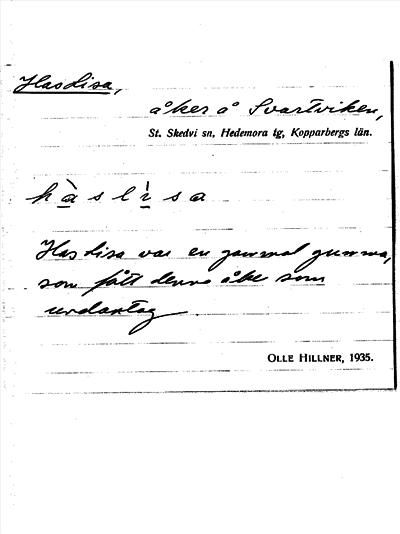 Has Lisa,
åker å Svartviken,
St. Skedvi sn, Hedemora tg, Kopparbergs län.
h à s l ì s a
Has Lisa var en gammal gumma,
som fått denna åke som
undantag
OLLE HILLNER, 1935.